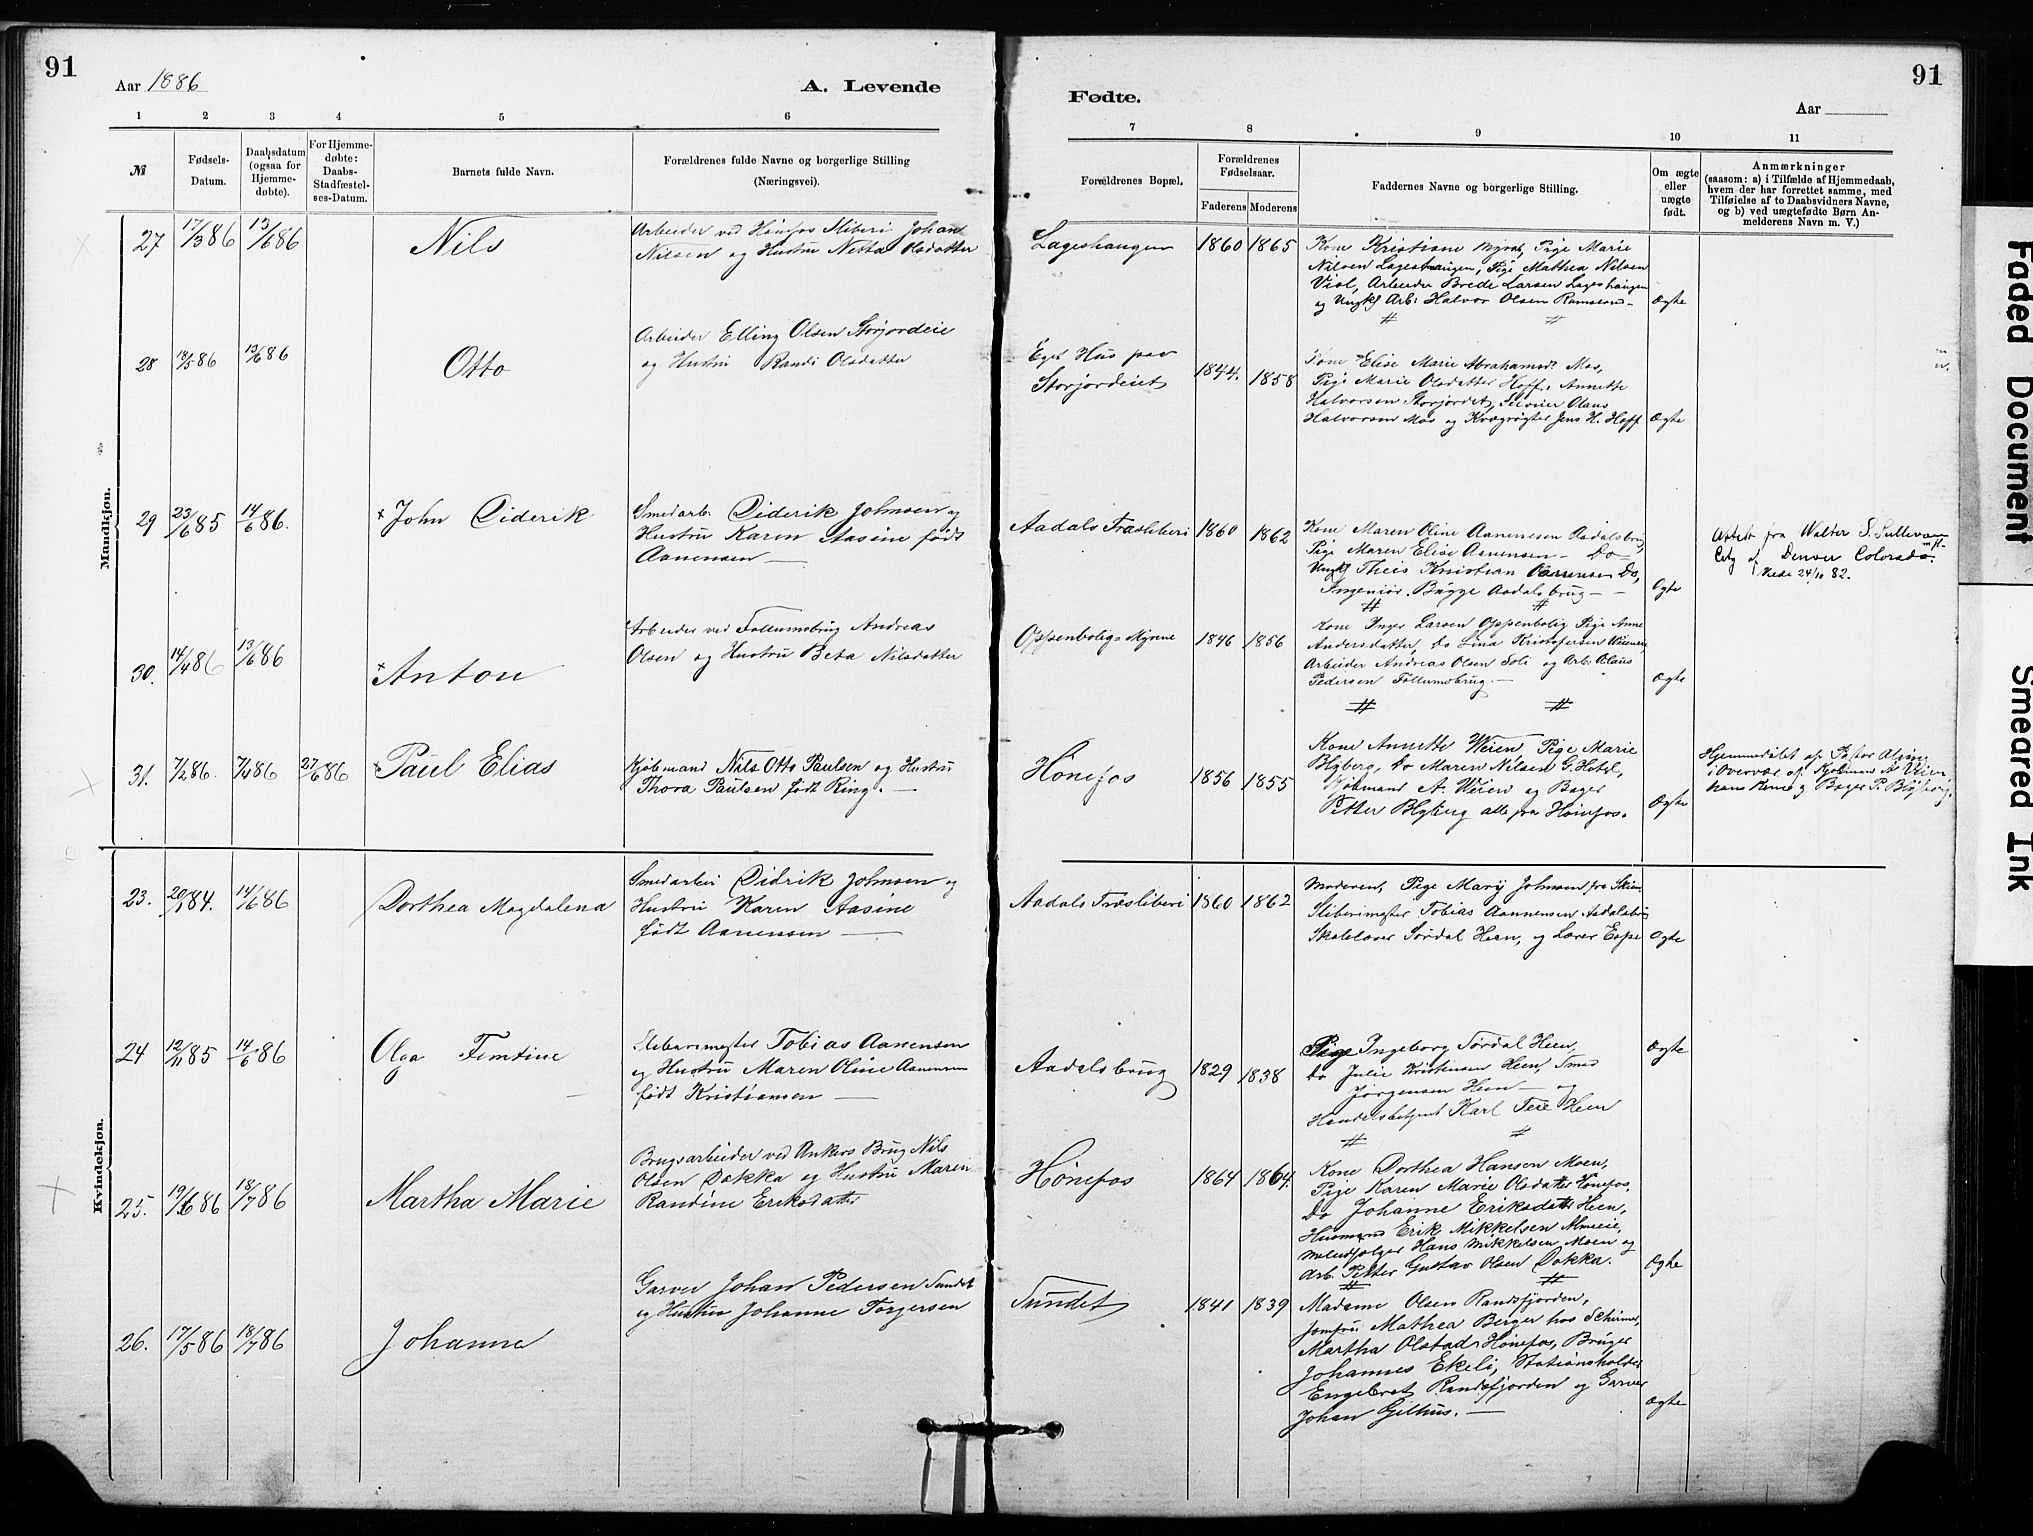 91
Aar 1886
A. Levende
1 2 3 4 5 6
№
Fødsels-
Datum.
Daabsdatum
(ogsaa for
Hjemme-
døbte).
For Hjemme-
døbte:
Daabs-
Stadfæstel-
ses-Datum.
Barnets fulde Navn.
Forældrenes fulde Navne og borgerlige Stilling
(Næringsvei).
Mandkjøn.
27 17/3 86 13/6 86 Nils
Arbeider ved Hønefos Sliberi Johan
Nilsen og Hustru Netta Olsdatter
28 18/5 86 13/6 86 Otto
Arbeider Elling Olsen Storjordeie
og Hustru Randi Olsdatter
29 23/6 85 14/6 86. × John Diderik
Smedarb. Diderik Johnsen og
Hustru Karen Aasine født
Aanensen —
30. 14/4 86 13/6 86 × Anton
Arbeider ved Follumsbrug Andreas
Olsen og Hustru Beta Nilsdatter
31. 7/2 86. 7/4 86 27/6 86 × Paul Elias
Kjøbmand Nils Otto Paulsen og Hustru
Thora Paulsen født Ring. —
Kvindekjøn.
23. 20/1 84. 14/6 86 Dorthea Magdalena
Smedarbei Didrik Johnsen og
Hustru Karen Aasine
født Aanensen —
24 12/11 85 14/6 86 Olga Femtine
Slibermester Tobias Aanensen
og Hustru Maren Oline Aanensen
født Kristiansen —
25. 19/6 86 18/7 86 Martha Marie
Brugsarbeider ved Ankers Brug Nils
Olsen Dokka og Hustru Maren
Randine Eriksdatter
26. 17/5 86 18/7 86 Johanne
Garver Johan Pedersen Sundet
og Hustru Johanne Torgersen
Fødte.
91
Aar
7 8 9 10 11
Forældrenes Bopæl.
Forældrenes
Fødselsaar.
Faderens Moderens
Faddernes Navne og borgerlige Stilling.
Om ægte
eller
uægte
født.
Anmærkninger
(saasom: a) i Tilfælde af Hjemmedaab,
hvem der har forrettet samme, med
Tilføielse af to Daabsvidners Navne,
og b) ved uægtefødte Børn An-
melderens Navn m. V.)
Lageshaugen 1860 1865
Kone Kristiane Myra, Pige Marie
Nilsen Lageshaugen, Pige Mathea Nilsen
Viol, Arbeider Brede Larsen Lageshaugen
og Ungk. Arb. Halvor Olsen Ramsrud — Ægte
Eget Hus paa
Storjordeiet 1844. 1858
Kone Elise Marie Abrahamsd. Mo,
Pige Marie Olsdatter Hoff, Annette
Halvorsen Storjordet, Olaus
Halvorsen Mo og Kvægrøgter Jens H. Hoff Ægte
Aadals Træsliberi 1860 1862
Kone Maren Oline Aanensen Aadalsbrug,
Pige Maren Elise Aanensen — Do
Ungk Theis Kristian Aanensen Do,
Ingeniør Bugge Aadalsbrug — Ægte
Attest fra Walter S. Sullivan
City of Denver Colorado.
24/10 82.
Oppenbolig Myrene 1846 1856
Kone Inger Larsen Oppenbolig Pige Anne
Andersdatter, Do Lina Kristofersen
Arbeider Andreas Olsen Soli og Arb. Olaus
Pedersen Follumsbrug. — Ægte
Hønefos 1856 1855
Kone Annette Weien, Pige Marie
Blyberg, Do Maren Nilsen G. Hotel,
Kjøbmand A. Weien og Bager
Petter Blyberg alle fra Hønefos. Ægte
Hjemmedøbt af Pastor
i Overvær af Kjøbmand A. Veien,
hans Kone og Bager P. Blyberg.
Aadals Træsliberi 1860 1862
Moderen, Pige Mary Johnsen fra Skien,
Sliberimester Tobias Aannensen Aadalsbrug
Skolelærer Sørdal Heen, og Lærer Ægte
Aadalsbrug 1829 1838
Pige Ingeborg Sørdal Heen, Ægte
Do Julie Kristinsen Heen, Smed
Jørgensen Heen — og
Handelsbetjent Karl Teie Heen
Hønefos 1864 1864.
Kone Dorthea Hansen Moen,
Pige Karen Marie Olsdatter Hønefos,
Do Johanne Eriksdatter Heen,
Husmand Erik Mikkelsen Almeie,
Hans Mikkelsen Moen og
Arb. Petter Gustav Olsen Dokka. Ægte
Sundet 1841 1839
Madame Olsen Randsfjorden,
Jomfru Mathea Berger hos Schirmer,
Martha Olstad Hønefos, Bruger
Johannes Ekeli, Stationsholder
Engebret Randsfjorden og Garver
Johan Gilhus. — Ægte
Faded Document
Smeared Ink